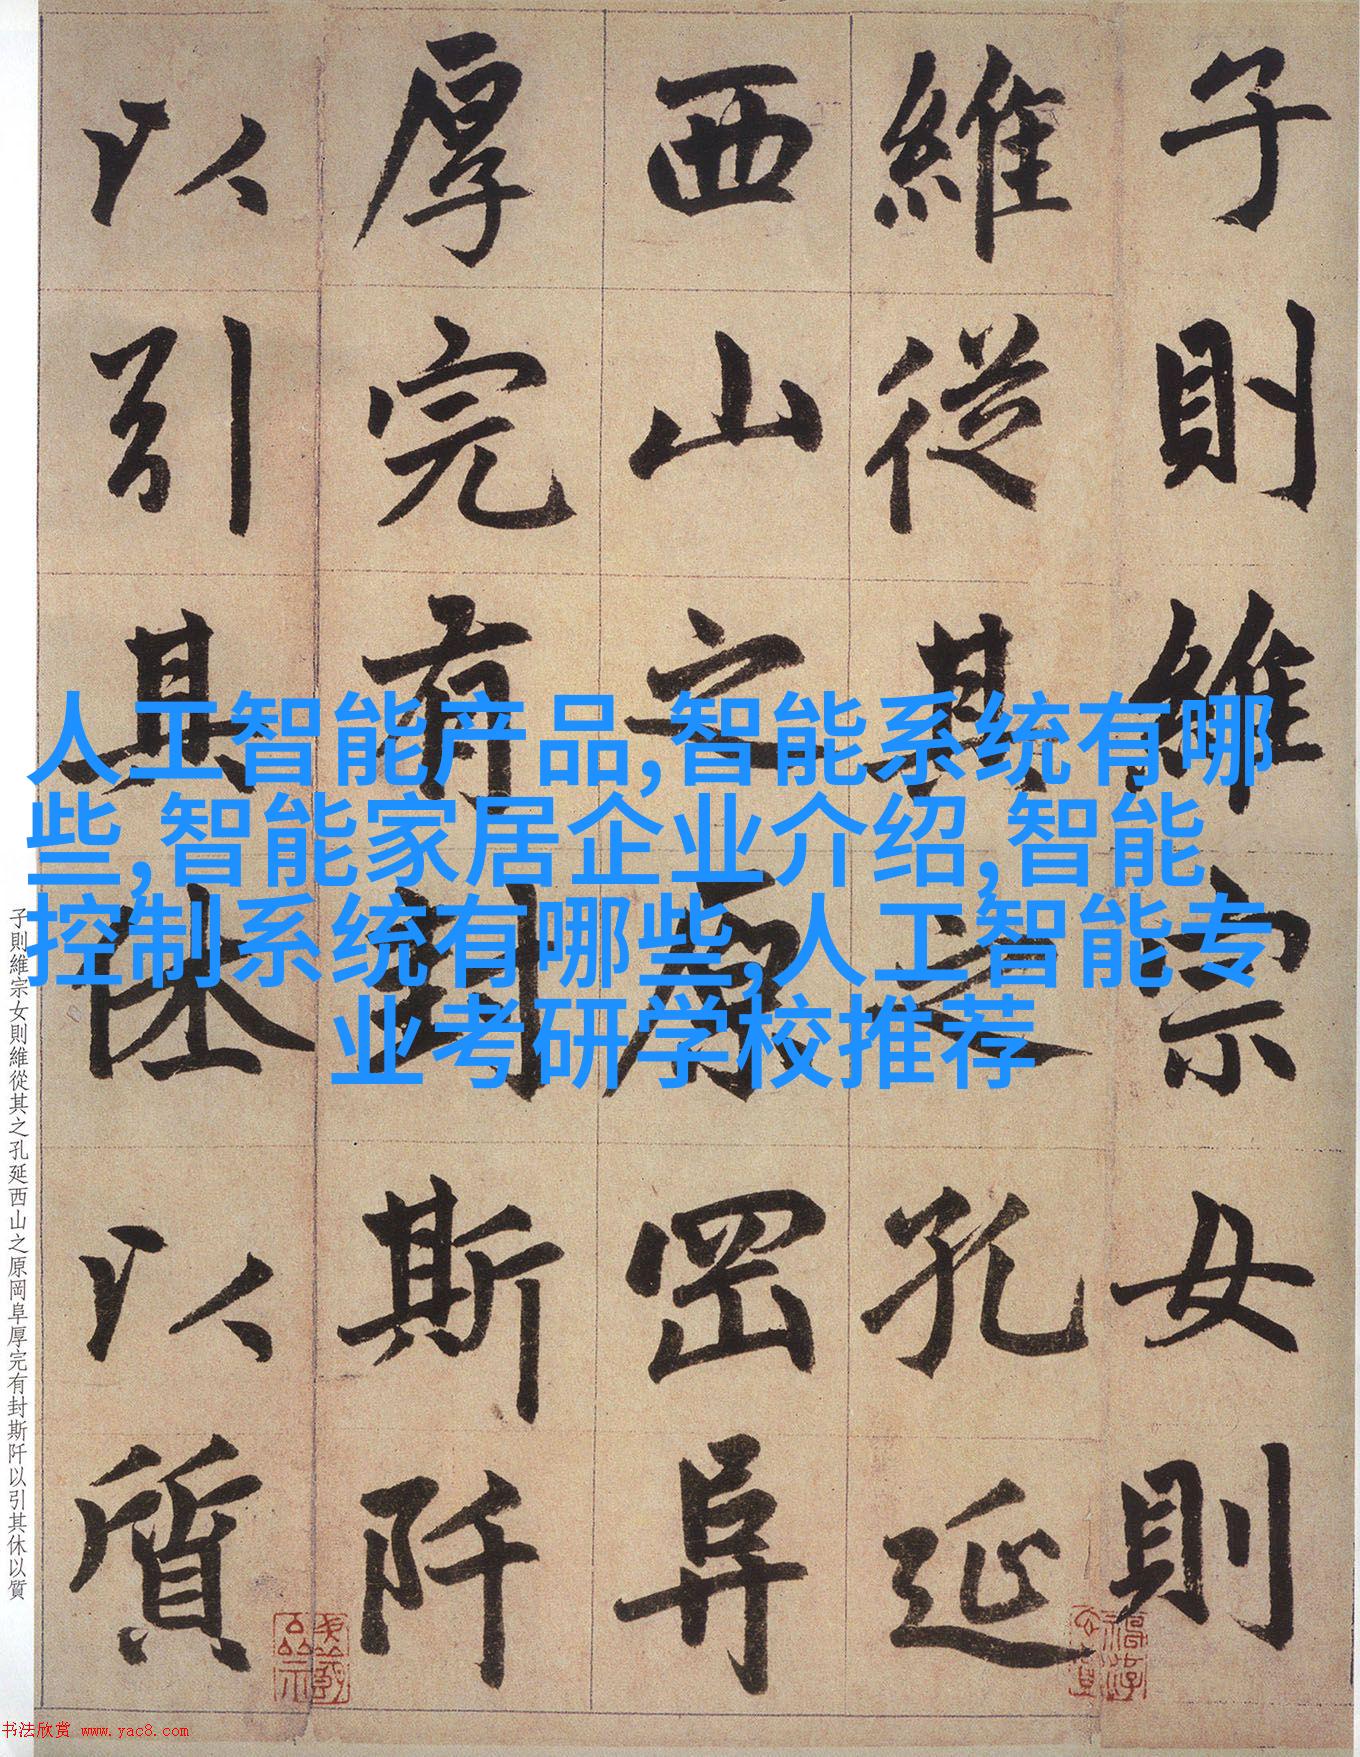 子則維宗女則
維從其之孔延
西山之原罡阜
厚完有封斯阡
以引其休以質
人工智能产品,智能系统有哪
些,智能家居企业介绍,智能
控制系统有哪些,人工智能专
业考研学校推荐
子則維宗女則維從其之孔延西山之原岡阜厚完有封斯阡以引其休以質
书法欣赏 www.yac8.com